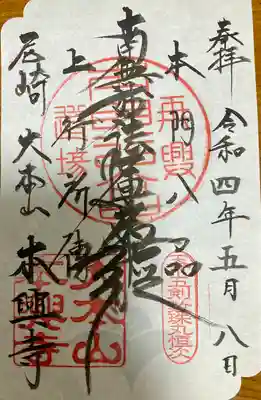 奉拝 令和四年五月八日
本門八品
南無妙法蓮華経
上行所傳
尼崎 大本山 本興寺
再興
大本山
本興寺